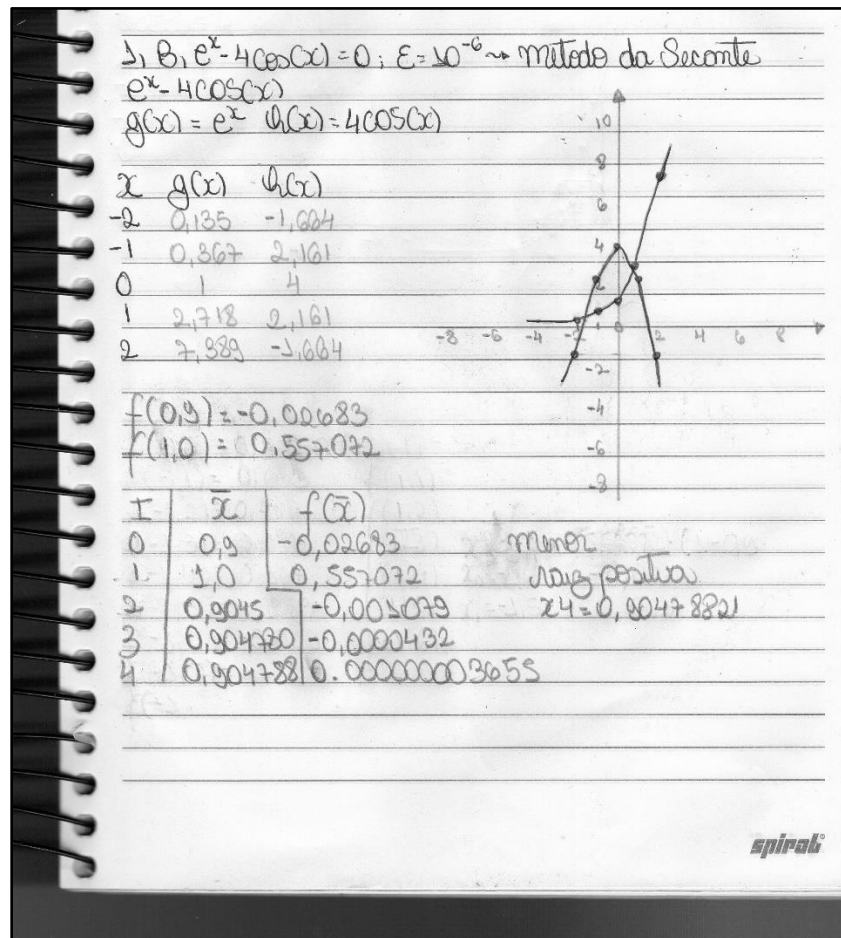 1, B, e^x - 4cos(x) = 0; ε = 10^-6 ~> metodo da Secante
e^x - 4COS(x)
g(x) = e^x h(x) = 4COS(x)
x g(x) h(x)
-2 0,135 -1,664
-1 0,367 2,161
0 1 4
1 2,718 2,161
2 7,389 -1,664
10
8
6
4
2
-8 -6 -4 -2 1 0 2 4 6 8
-2
-4
-6
-8
f(0,9) = -0,02683
f(1,0) = 0,557072
I x̄ f(x̄)
0 0,9 -0,02683
1 1,0 0,557072
2 0,9045 -0,001079
3 0,904780 -0,0000432
4 0,904788 0.000000003655
menor
raiz positiva
x4 = 0,90478821
spiral®